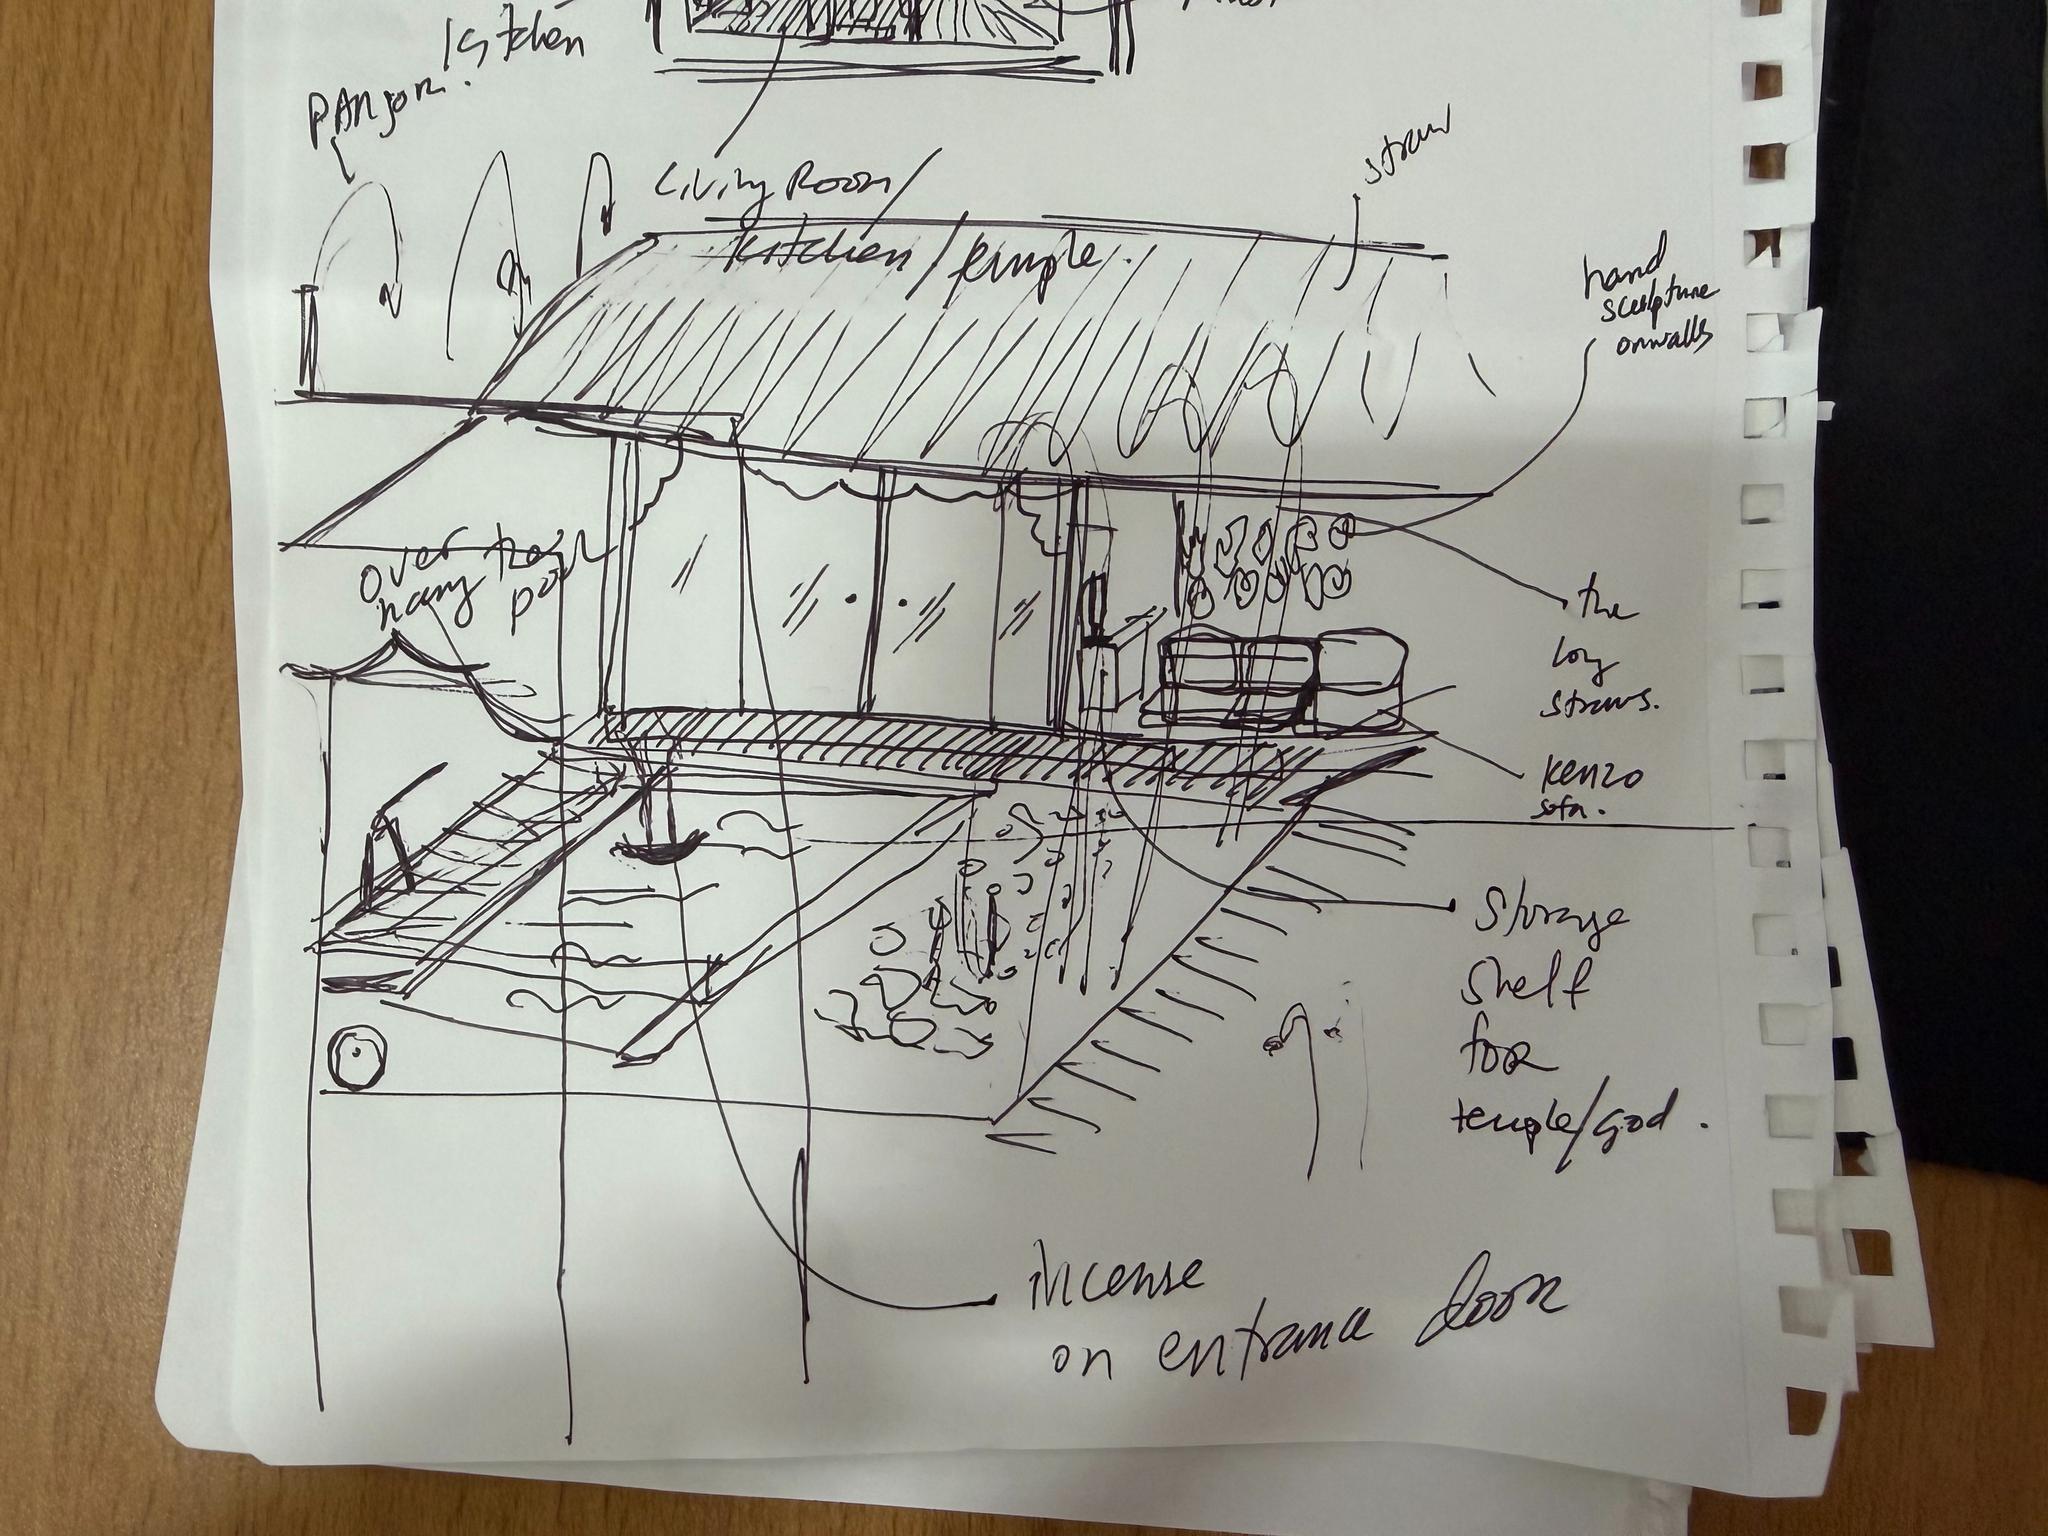 Kitchen
PANjOR.
Living Room/
Kitchen/temple.
straw
hand
sculpture
on walls
over
hang
the
long
straws.
KENZO
sofa.
Storage
shelf
for
temple/god.
incense
on entrance door